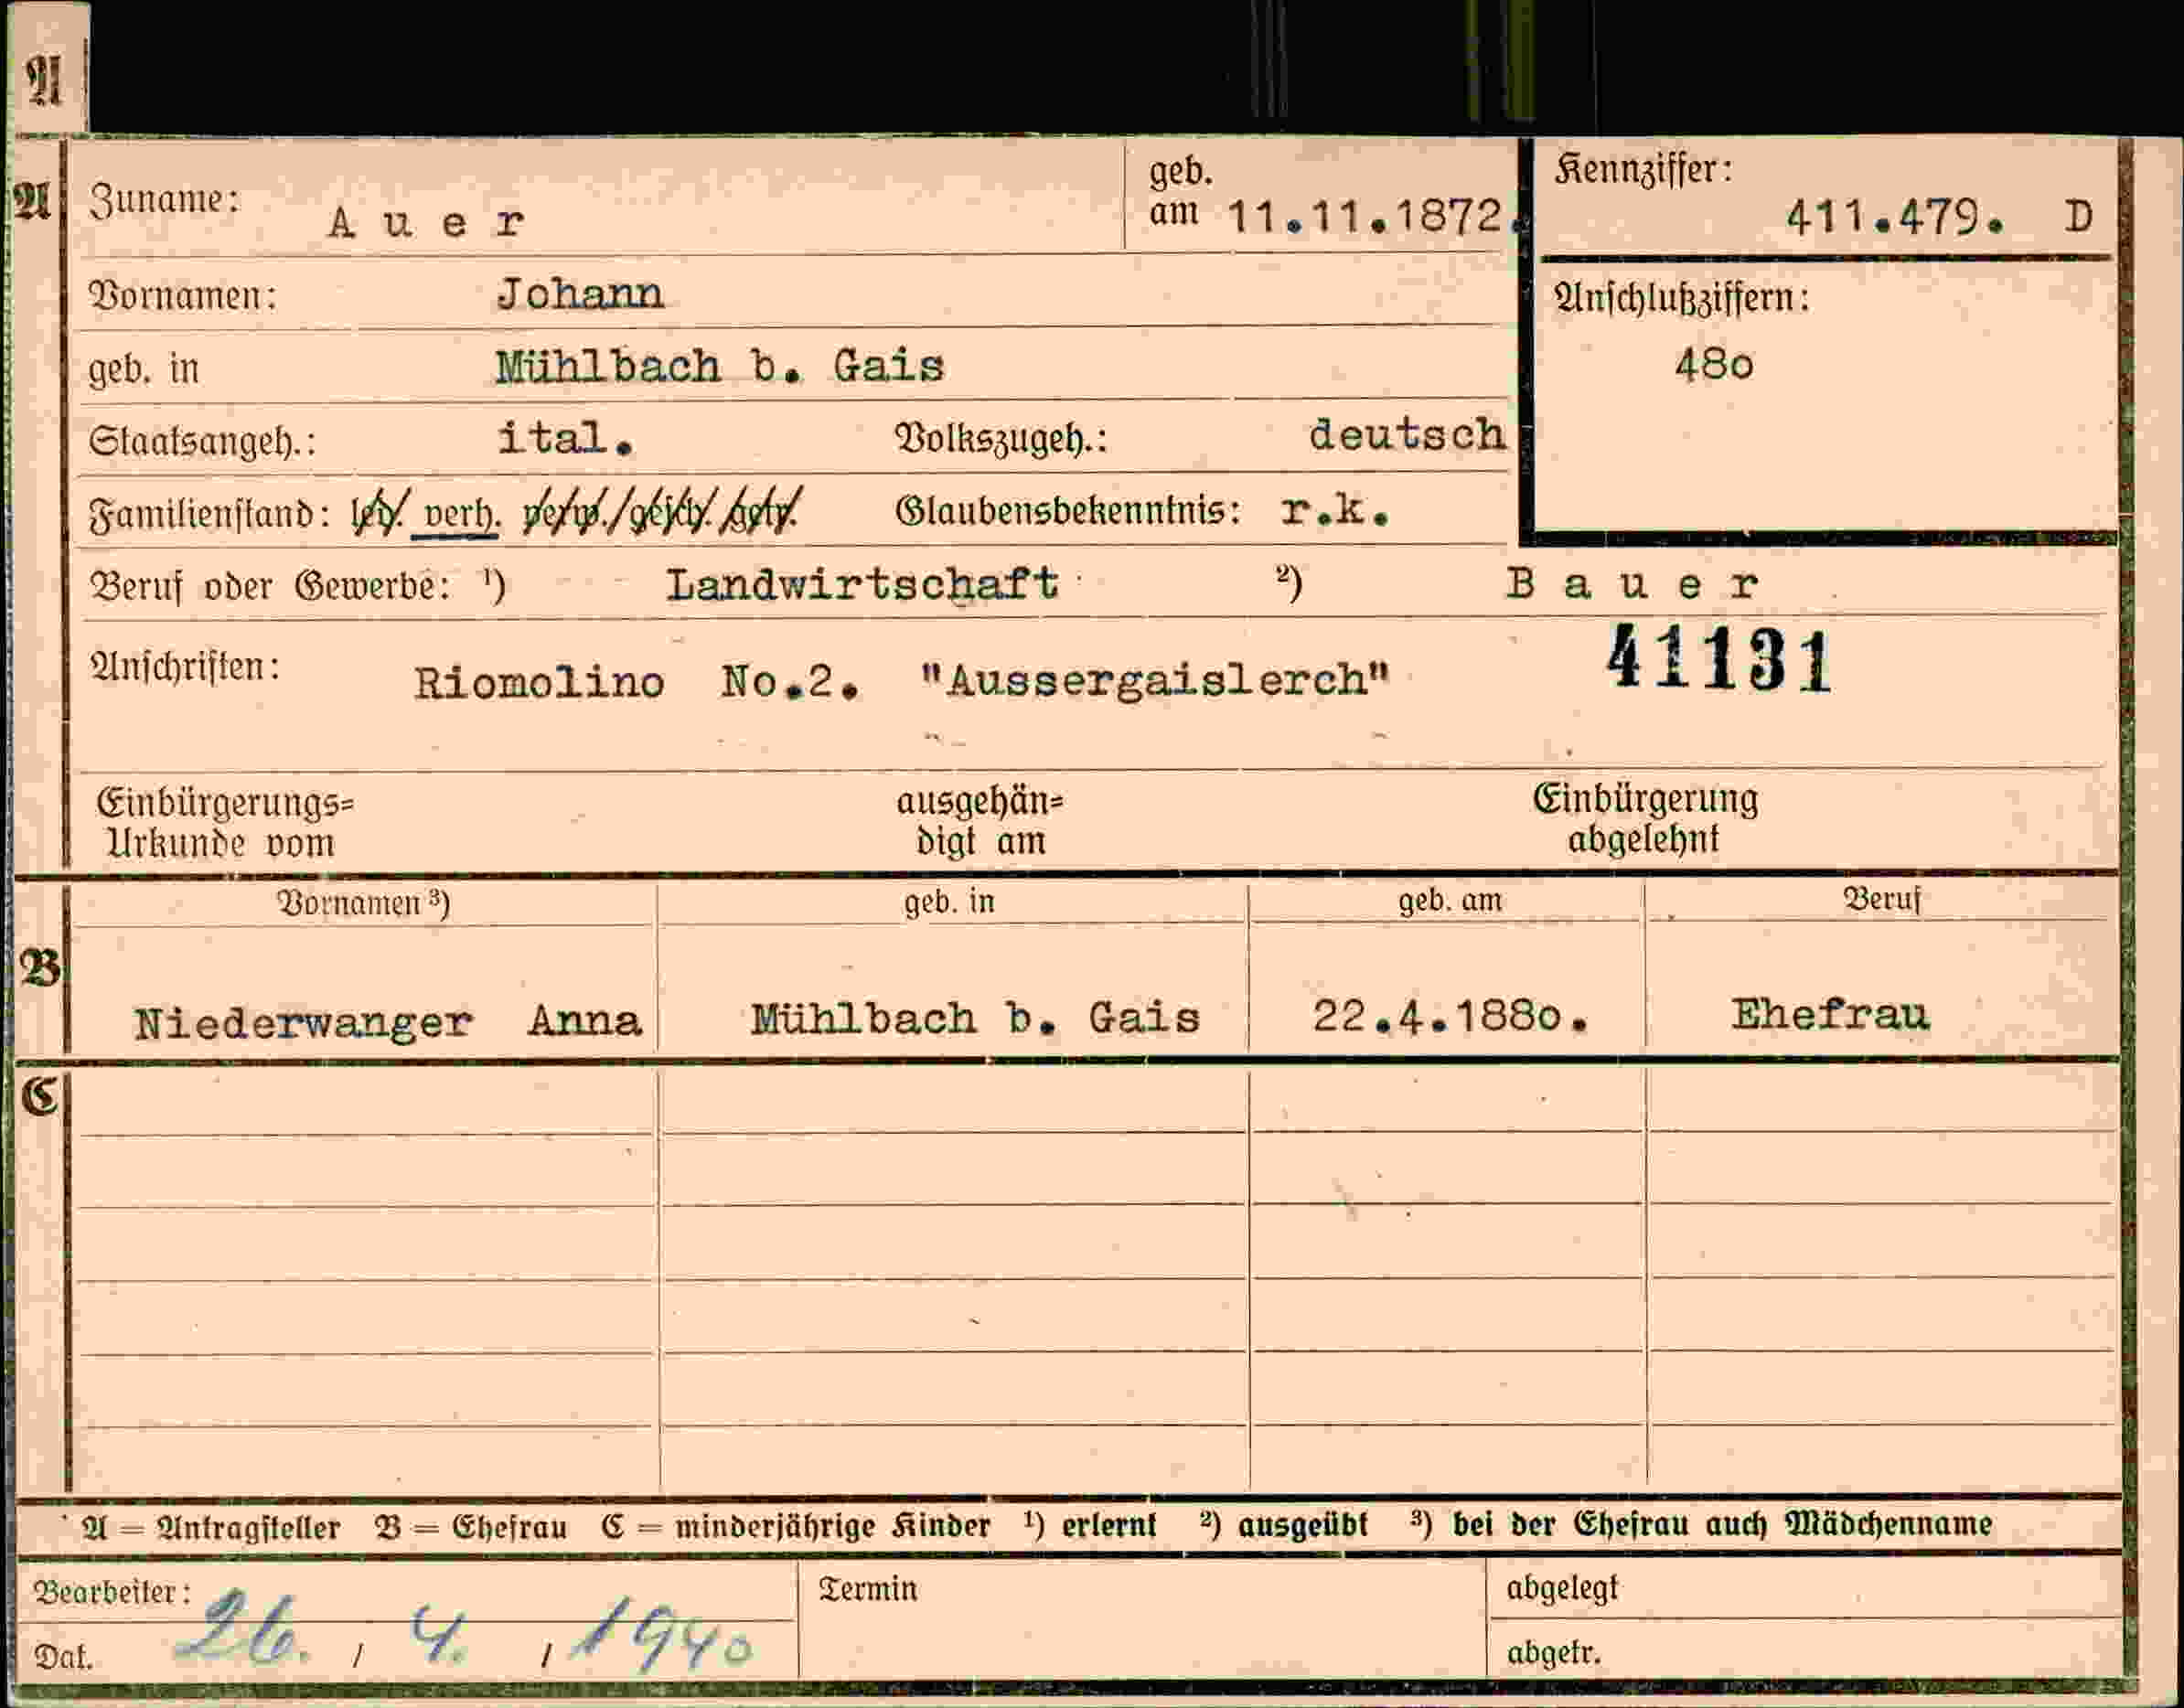 A
A
Zuname: Auer
geb. am 11.11.1872.
Kennziffer: 411.479. D
Vornamen: Johann
Anschlußziffern: 48o
geb. in Mühlbach b. Gais
Staatsangeh.: ital. Volkszugeh.: deutsch
Familienstand: led. verh. verw./gesch./getr. Glaubensbekenntnis: r.k.
Beruf oder Gewerbe: ¹) Landwirtschaft ²) Bauer
Anschriften: Riomolino No.2. "Aussergaislerch" 41131
Einbürgerungs= ausgehän= Einbürgerung
Urkunde vom digt am abgelehnt
Vornamen ³) geb. in geb. am Beruf
B
Niederwanger Anna Mühlbach b. Gais 22.4.188o. Ehefrau
C
A = Antragsteller B = Ehefrau C = minderjährige Kinder ¹) erlernt ²) ausgeübt ³) bei der Ehefrau auch Mädchenname
Bearbeiter: Termin abgelegt
Dat. 26. / 4. / 1940 abgetr.